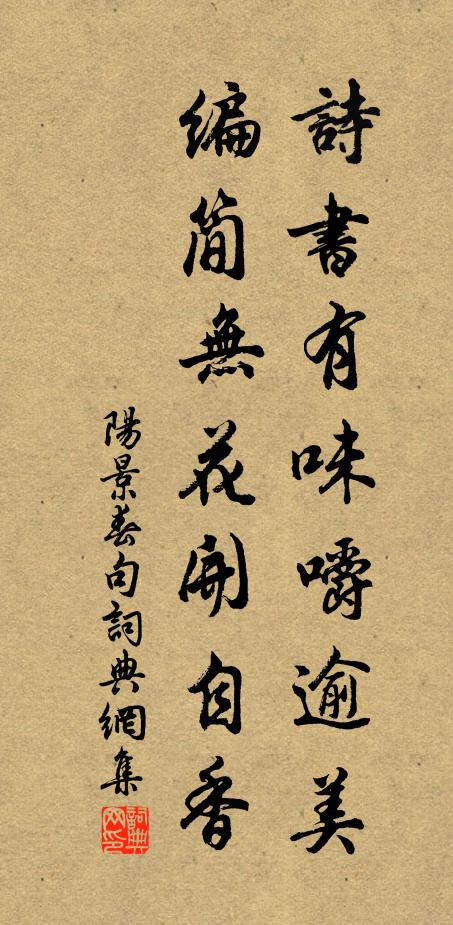 詩書有味嚼逾美
編簡無花開自香
陽景春句詞典網集
詞典網印